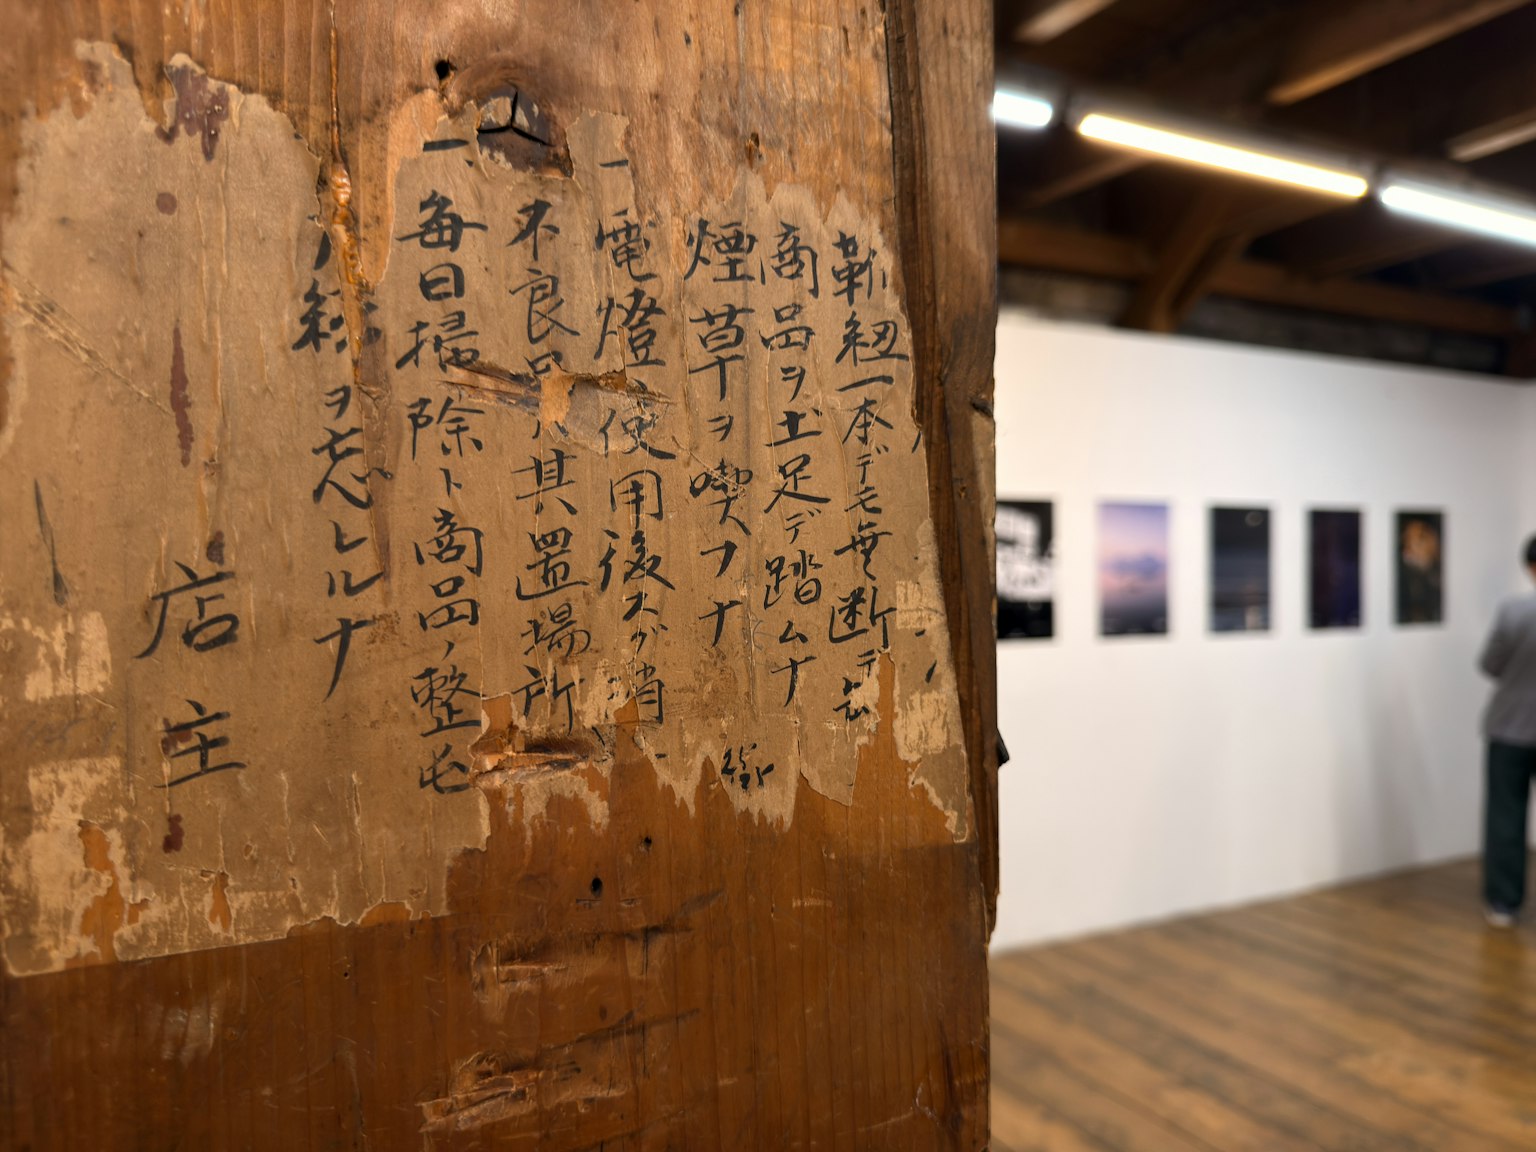 靴紐一本デモ無断デ
商品ヲ土足デ踏ムナ
煙草ヲ喫フナ
一電燈使用後スグ消
不良品ハ其置場所
一、毎日掃除ト商品ノ整
ヲ忘レルナ
店主